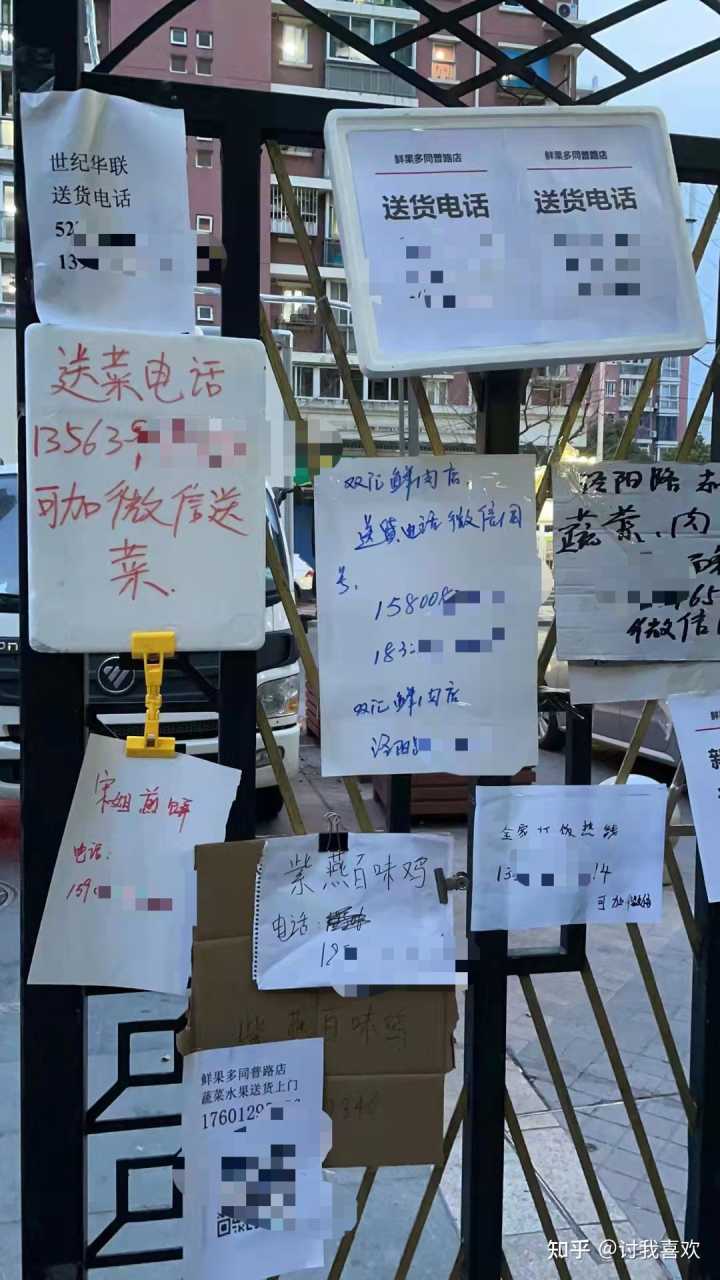 世纪华联
送货电话
52
13
鲜果多同普路店
送货电话
鲜果多同普路店
送货电话
送菜电话
13563
可加微信送
菜.
双汇鲜肉店
送货电话微信同
号.
15800
183
双汇鲜肉店
洛阳
洛阳路
蔬菜.肉
465
微信
宋姐煎饼
电话:
159
紫燕百味鸡
电话:
全家订饭热线
13 14
可加微信
鲜
新
紫燕百味鸡
鲜果多同普路店
蔬菜水果送货上门
1760129
知乎 @讨我喜欢